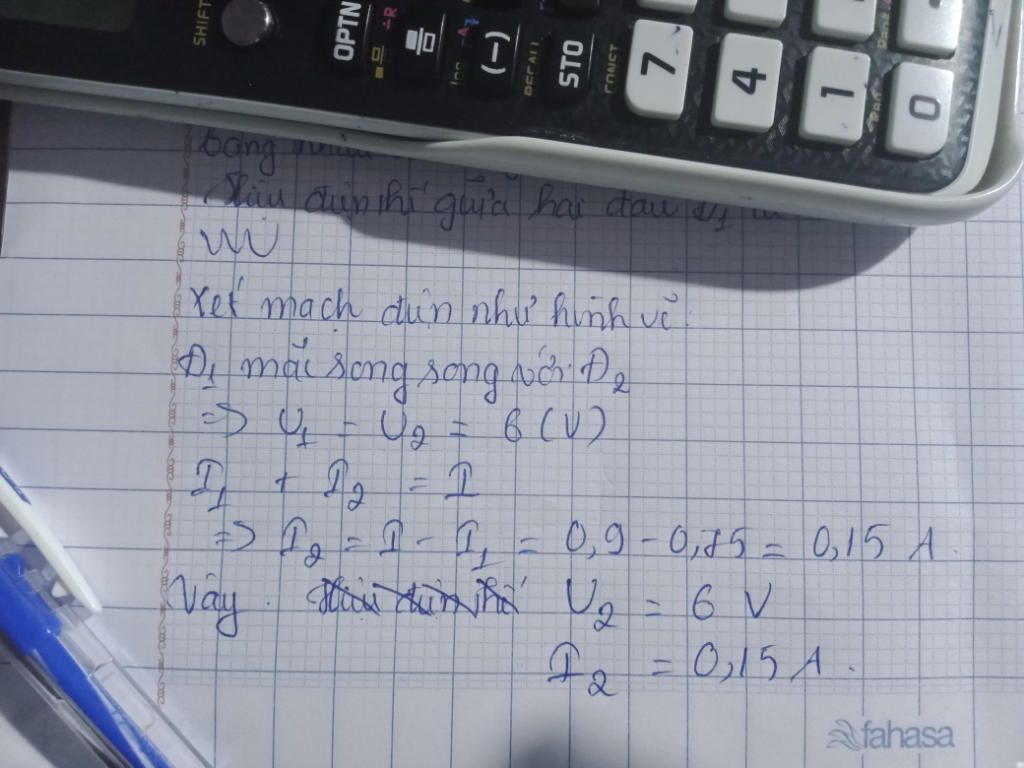 SHIFT
OPTN
(−)
RECALL
STO
CONST
7
4
1
0
bằng
Hiệu điện thế giữa hai đầu Đ1
Xét mạch điện như hình vẽ.
Đ1 mắc song song với Đ2
=> U1 = U2 = 6 (V)
I1 + I2 = I
=> I2 = I - I1 = 0,9 - 0,75 = 0,15 A.
Vậy. U2 = 6 V
I2 = 0,15 A.
fahasa